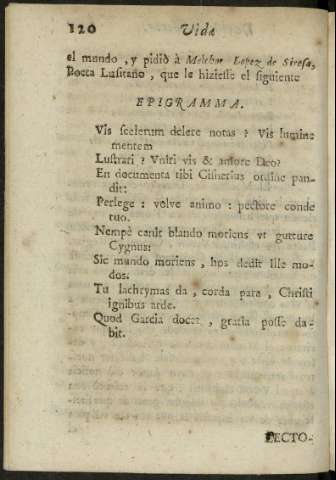 120 Vida
el mundo, y pidiò à Melchor Lopez de Sirosa,
Poeta Lusitano, que le hiziesse el siguiente
EPIGRAMMA.
Vis scelerum delere notas? Vis lumine
mentem
Lustrari? Vniri vis & amore Deo?
En documenta tibi Cisnerius ordine pan-
dit:
Perlege: volve animo: pectore conde
tuo.
Nempè canit blando moriens vt gutture
Cygnus:
Sic mundo moriens, hos dedit Ille mo-
dos.
Tu lachrymas da, corda para, Christi
ignibus arde.
Quod Garcia docet, gratia posse da-
bit.
PECTO-